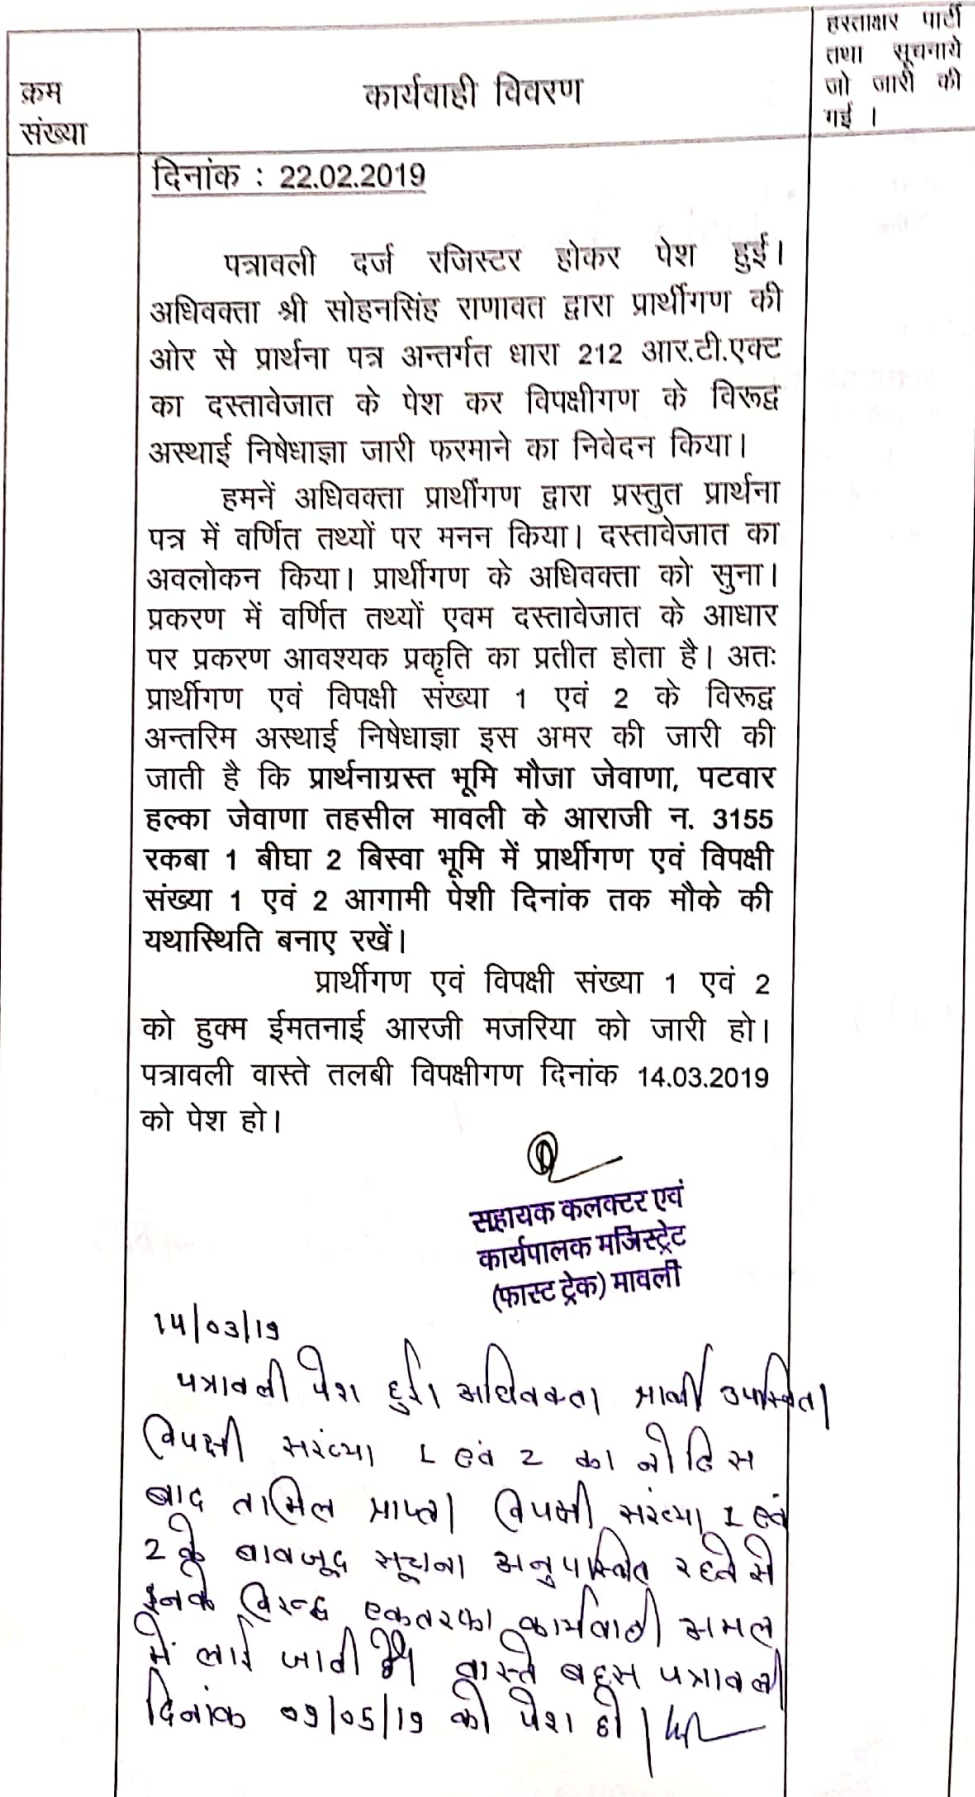 क्रम
संख्या
कार्यवाही विवरण
हस्ताक्षर पार्टी
तथा सूचनाये
जो जारी की
गई ।
दिनांक : 22.02.2019
पत्रावली दर्ज रजिस्टर होकर पेश हुई।
अधिवक्ता श्री सोहनसिंह राणावत द्वारा प्रार्थीगण की
ओर से प्रार्थना पत्र अन्तर्गत धारा 212 आर.टी.एक्ट
का दस्तावेजात के पेश कर विपक्षीगण के विरूद्व
अस्थाई निषेधाज्ञा जारी फरमाने का निवेदन किया।
हमनें अधिवक्ता प्रार्थीगण द्वारा प्रस्तुत प्रार्थना
पत्र में वर्णित तथ्यों पर मनन किया। दस्तावेजात का
अवलोकन किया। प्रार्थीगण के अधिवक्ता को सुना।
प्रकरण में वर्णित तथ्यों एवम दस्तावेजात के आधार
पर प्रकरण आवश्यक प्रकृति का प्रतीत होता है। अतः
प्रार्थीगण एवं विपक्षी संख्या 1 एवं 2 के विरूद्व
अन्तरिम अस्थाई निषेधाज्ञा इस अमर की जारी की
जाती है कि प्रार्थनाग्रस्त भूमि मौजा जेवाणा, पटवार
हल्का जेवाणा तहसील मावली के आराजी न. 3155
रकबा 1 बीघा 2 बिस्वा भूमि में प्रार्थीगण एवं विपक्षी
संख्या 1 एवं 2 आगामी पेशी दिनांक तक मौके की
यथास्थिति बनाए रखें।
प्रार्थीगण एवं विपक्षी संख्या 1 एवं 2
को हुक्म ईमतनाई आरजी मजरिया को जारी हो।
पत्रावली वास्ते तलबी विपक्षीगण दिनांक 14.03.2019
को पेश हो।
सहायक कलक्टर एवं
कार्यपालक मजिस्ट्रेट
(फास्ट ट्रेक) मावली
14/03/19
पत्रावली पेश हुई। अधिवक्ता प्रार्थी उपस्थित।
विपक्षी संख्या 1 एवं 2 का नोटिस
बाद तामिल प्राप्त। विपक्षी संख्या 1 एवं
2 के बावजूद सूचना अनुपस्थित रहने से
इनके विरूद्ध एकतरफा कार्यवाही अमल
में लाई जाती है। वास्ते बहस पत्रावली
दिनांक 09/05/19 को पेश हो।